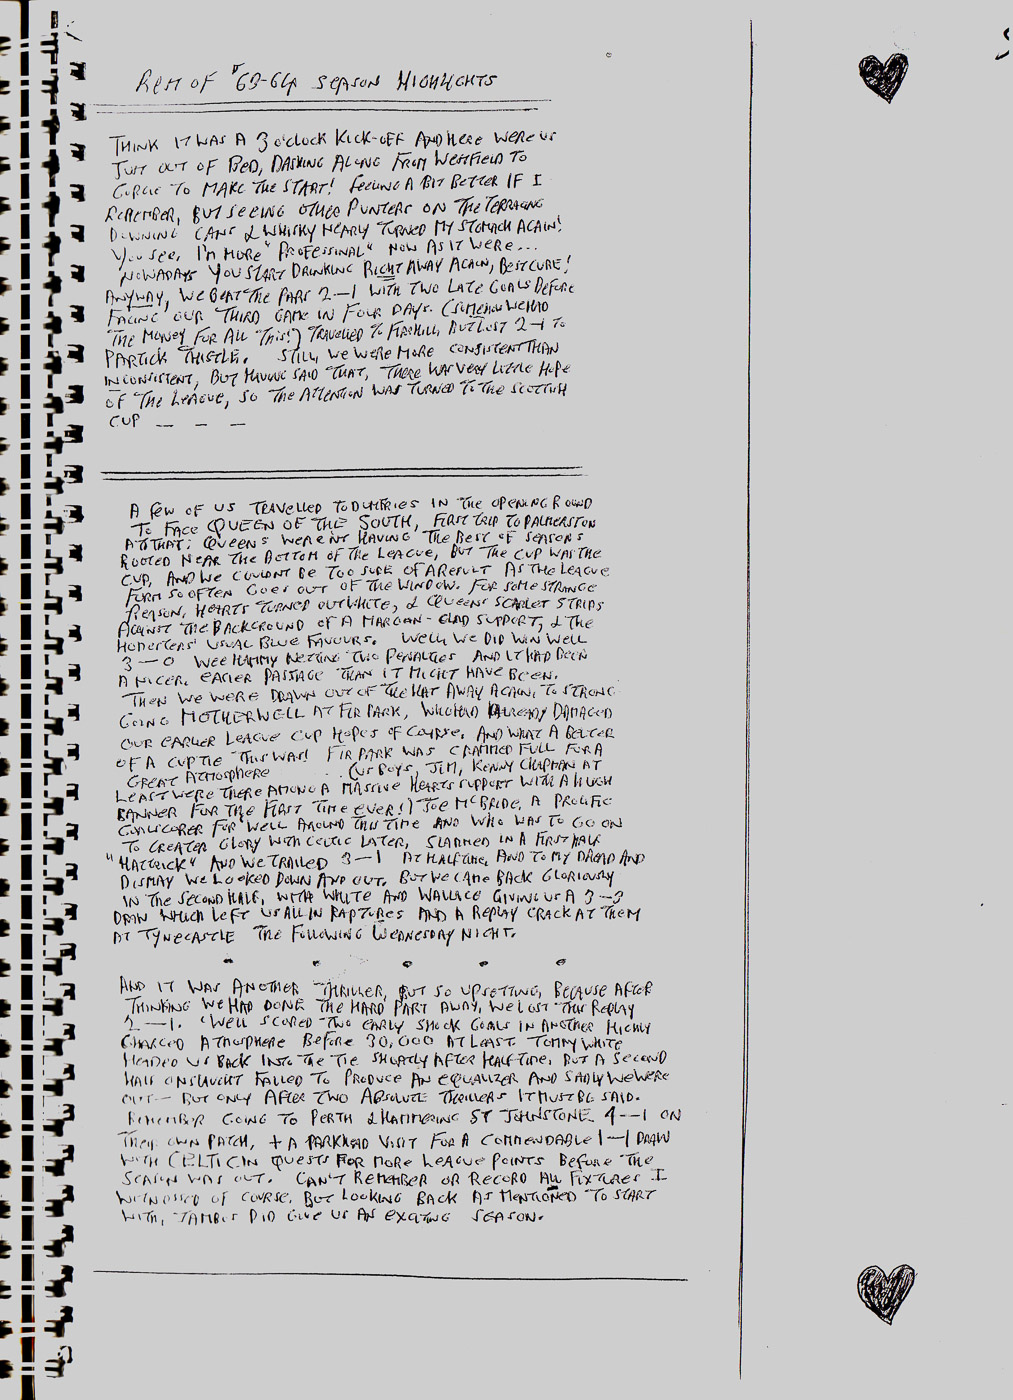 REST OF "63-64 SEASON HIGHLIGHTS
THINK IT WAS A 3 O'CLOCK KICK-OFF AND HERE WERE US
JUST OUT OF BED, DASHING ALONG FROM WESTFIELD TO
GORGIE TO MAKE THE START! FEELING A BIT BETTER IF I
REMEMBER, BUT SEEING OTHER PUNTERS ON THE TERRACING
DOWNING CANS & WHISKY NEARLY TURNED MY STOMACH AGAIN!
YOU SEE, I'M MORE "PROFESSIONAL" NOW AS IT WERE...
NOWADAYS YOU START DRINKING RIGHT AWAY AGAIN, BEST CURE!
ANYWAY, WE BEAT THE PARS 2-1 WITH TWO LATE GOALS BEFORE
FACING OUR THIRD GAME IN FOUR DAYS. (SOMEHOW WE HAD
THE MONEY FOR ALL THIS!) TRAVELLED TO FIRHILL, BUT LOST 2-1 TO
PARTICK THISTLE. STILL, WE WERE MORE CONSISTENT THAN
INCONSISTENT, BUT HAVING SAID THAT, THERE WAS VERY LITTLE HOPE
OF THE LEAGUE, SO THE ATTENTION WAS TURNED TO THE SCOTTISH
CUP — — —
A FEW OF US TRAVELLED TO DUMFRIES IN THE OPENING ROUND
TO FACE QUEEN OF THE SOUTH, FIRST TRIP TO PALMERSTON
AT THAT; QUEENS WERENT HAVING THE BEST OF SEASONS
ROOTED NEAR THE BOTTOM OF THE LEAGUE, BUT THE CUP WAS THE
CUP, AND WE COULDNT BE TOO SURE OF A RESULT AS THE LEAGUE
FORM SO OFTEN GOES OUT OF THE WINDOW. FOR SOME STRANGE
REASON, HEARTS TURNED OUT WHITE, & QUEENS SCARLET STRIPS
AGAINST THE BACKGROUND OF A MAROON-CLAD SUPPORT, & THE
HOMESTERS' USUAL BLUE FAVOURS. WELL, WE DID WIN WELL
3-0 WEE HAMMY NETTING TWO PENALTIES AND IT HAD BEEN
A NICER, EASIER PASSAGE THAN IT MIGHT HAVE BEEN.
THEN WE WERE DRAWN OUT OF THE HAT AWAY AGAIN, TO STRONG
GOING MOTHERWELL AT FIR PARK, WHO HAD ALREADY DAMAGED
OUR EARLIER LEAGUE CUP HOPES OF COURSE. AND WHAT A BELTER
OF A CUP TIE THIS WAS! FIR PARK WAS CRAMMED FULL FOR A
GREAT ATMOSPHERE ... (US BOYS, JIM, KENNY CHAPMAN AT
LEAST WERE THERE AMONG A MASSIVE HEARTS SUPPORT WITH A HUGH
BANNER FOR THE FIRST TIME EVER!) JOE MCBRIDE, A PROLIFIC
GOALSCORER FOR WELL AROUND THIS TIME AND WHO WAS TO GO ON
TO GREATER GLORY WITH CELTIC LATER, SLAMMED IN A FIRST HALF
"HATTRICK" AND WE TRAILED 3-1 AT HALF TIME, AND TO MY DREAD AND
DISMAY WE LOOKED DOWN AND OUT. BUT WE CAME BACK GLORIOUSLY
IN THE SECOND HALF, WITH WHITE AND WALLACE GIVING US A 3-3
DRAW WHICH LEFT US ALL IN RAPTURES AND A REPLAY CRACK AT THEM
AT TYNECASTLE THE FOLLOWING WEDNESDAY NIGHT.
AND IT WAS ANOTHER THRILLER, BUT SO UPSETTING, BECAUSE AFTER
THINKING WE HAD DONE THE HARD PART AWAY, WE LOST THIS REPLAY
2-1. 'WELL SCORED TWO EARLY SHOCK GOALS IN ANOTHER HIGHLY
CHARGED ATMOSPHERE BEFORE 30,000 AT LEAST. TOMMY WHITE
HEADED US BACK INTO THE TIE SHORTLY AFTER HALF TIME, BUT A SECOND
HALF ONSLAUGHT FAILED TO PRODUCE AN EQUALIZER AND SADLY WE WERE
OUT - BUT ONLY AFTER TWO ABSOLUTE THRILLERS IT MUST BE SAID.
REMEMBER GOING TO PERTH & HAMMERING ST JOHNSTONE 4-1 ON
THEIR OWN PATCH, + A PARKHEAD VISIT FOR A COMMENDABLE 1-1 DRAW
WITH CELTIC IN QUESTS FOR MORE LEAGUE POINTS BEFORE THE
SEASON WAS OUT. CAN'T REMEMBER OR RECORD ALL FIXTURES I
WITNESSED OF COURSE, BUT LOOKING BACK AS MENTIONED TO START
WITH, JAMBOS DID GIVE US AN EXCITING SEASON.